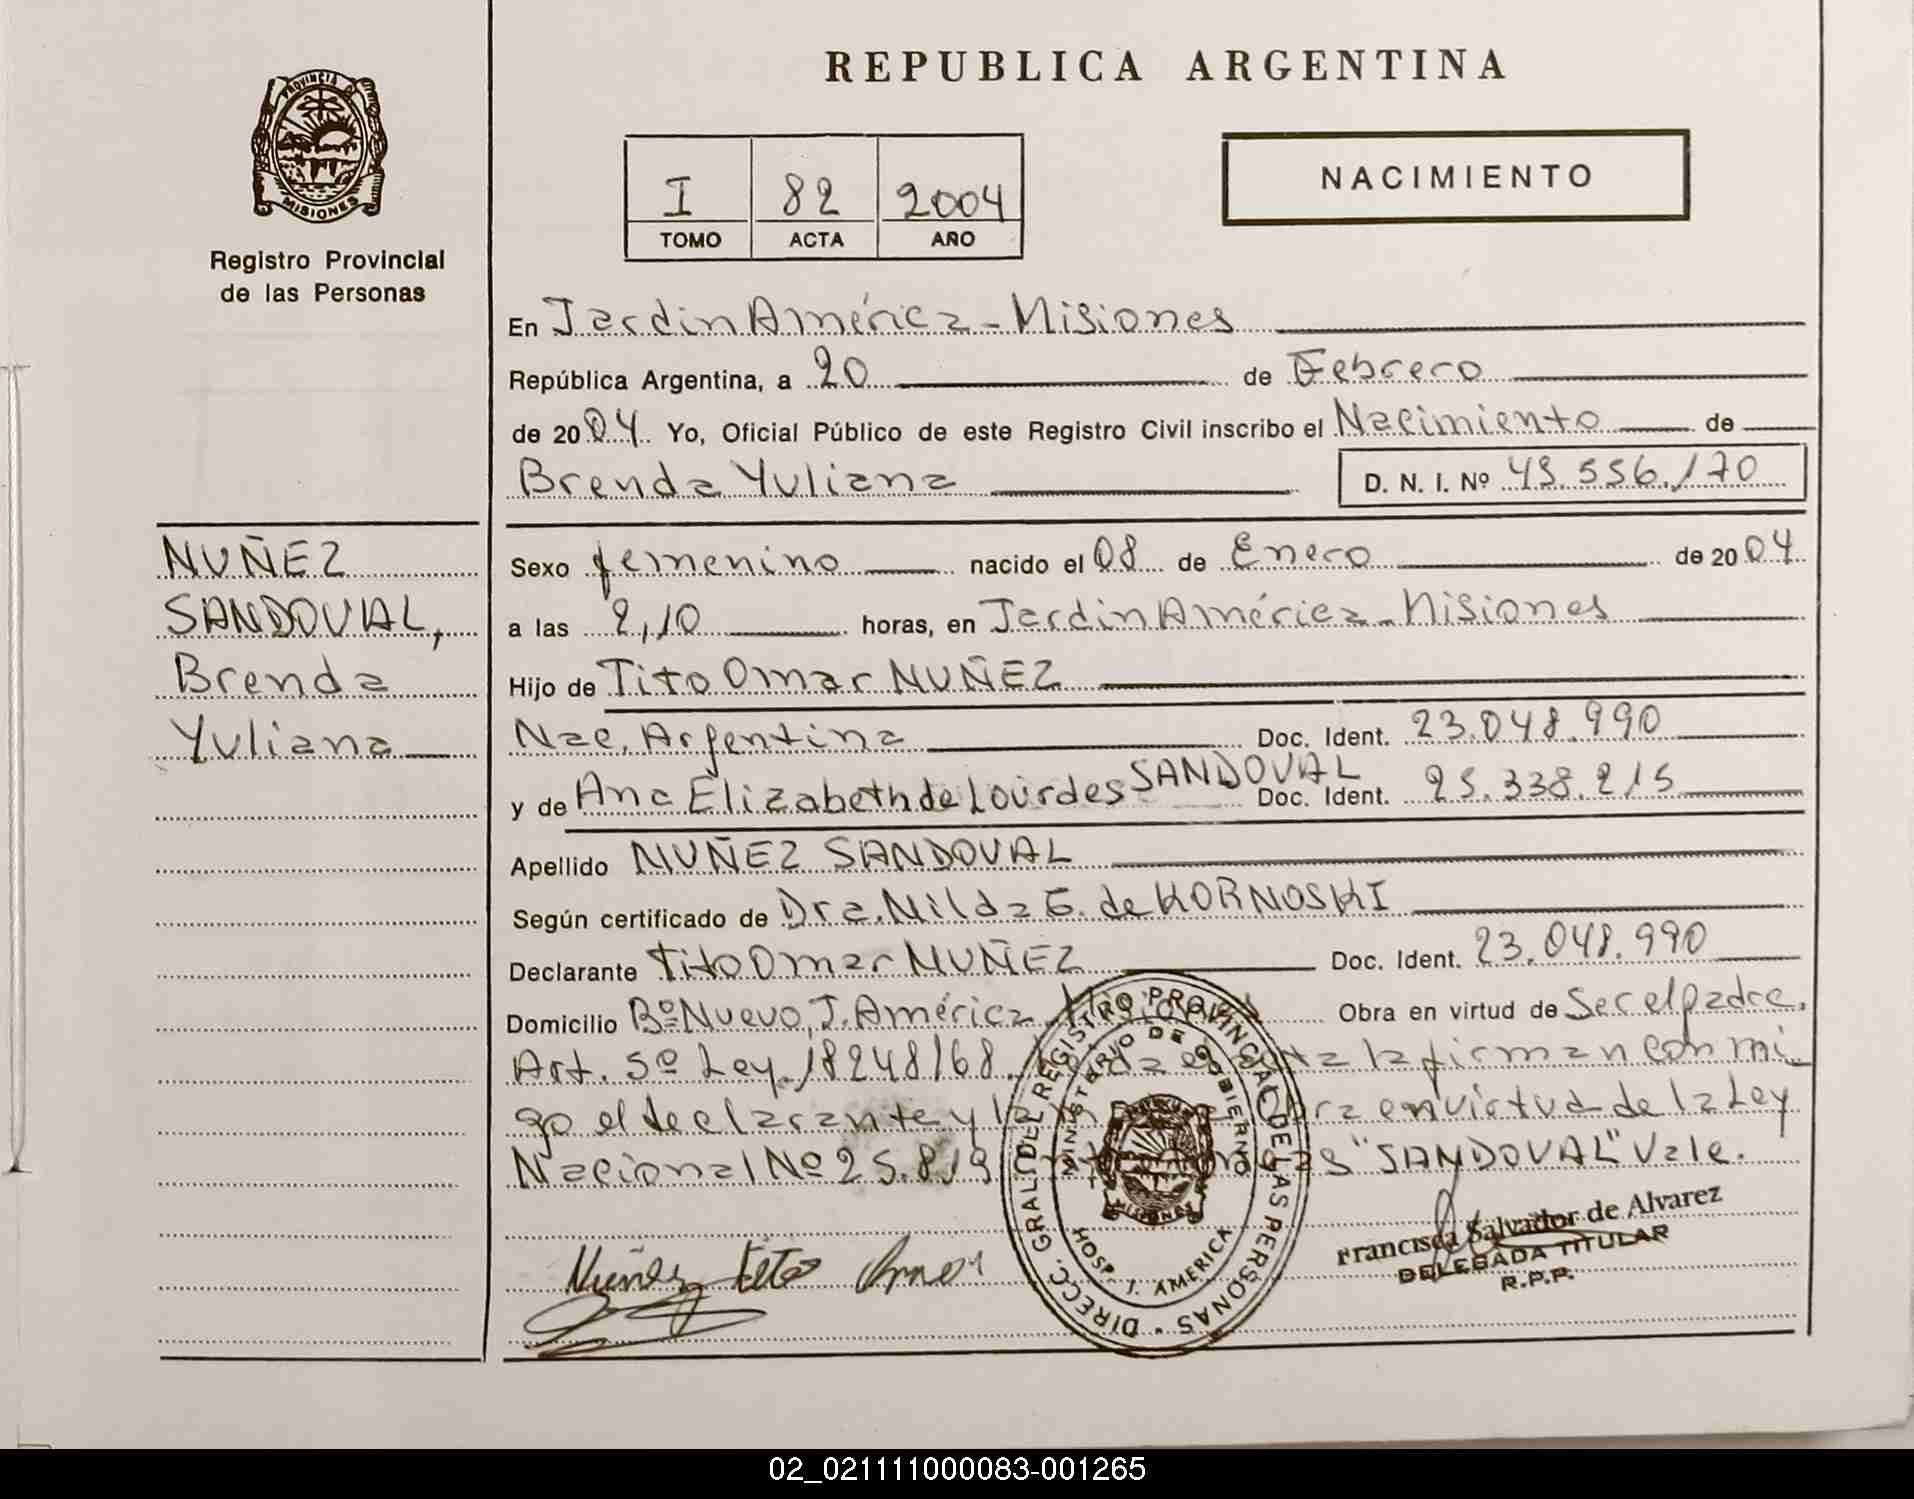 REPUBLICA ARGENTINA
PROVINCIA DE
MISIONES
Registro Provincial
de las Personas
I 82 2004
TOMO ACTA AÑO
NACIMIENTO
En Jardin América - Misiones
República Argentina, a 20 de Febrero
de 2004. Yo, Oficial Público de este Registro Civil inscribo el Nacimiento de
Brenda Yuliana D. N. I. Nº 45.556.170
NUÑEZ
SANDOVAL,
Brenda
Yuliana
Sexo femenino nacido el 08 de Enero de 2004
a las 2,10 horas, en Jardin América - Misiones
Hijo de Tito Omar NUÑEZ
Nac. Argentina Doc. Ident. 23.048.990
y de Ana Elizabeth de Lourdes SANDOVAL Doc. Ident. 25.338.215
Apellido NUÑEZ SANDOVAL
Según certificado de Dra. Nilda G. de KORNOSKI
Declarante Tito Omar NUÑEZ Doc. Ident. 23.048.990
Domicilio Bº Nuevo, J. América Obra en virtud de Ser el padre.
Art. 5º Ley 18248/68. la firman con mi
go el declarante y en virtud de la Ley
Nacional Nº 25.819 "SANDOVAL" Vale.
DIRECC. GRAL. DEL REGISTRO PROVINCIAL DE LAS PERSONAS
MINISTERIO DE GOBIERNO
MISIONES
HOSP. J. AMERICA
Nuñez Tito Omar
Francisca Salvador de Alvarez
DELEGADA TITULAR
R.P.P.
02_021111000083-001265